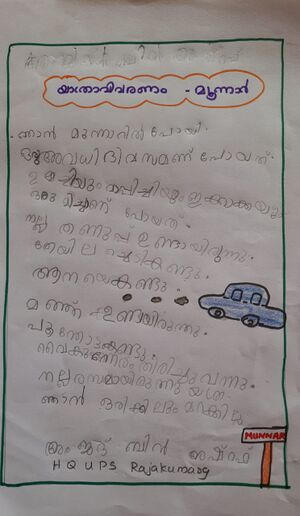 യാത്രാവിവരണം - മൂന്നാർ
ഞാൻ മൂന്നാറിൽ പോയി.
ഒരു അവധി ദിവസമണ് പോയത്.
ഉമ്മച്ചിയും വാപ്പിച്ചിയും ഇക്കാക്കയും
ഒരു മിച്ചണ് പോയത്.
നല്ല തണുപ്പ് ഉണ്ടായിരുന്നു.
തേയില ചെടികണ്ടു.
ആനയെകണ്ടു.
മഞ്ഞ് ഉണ്ടായിരുന്നു.
പൂന്തോട്ടംകണ്ടു.
വൈകുന്നേരം തിരിച്ചു വന്നു.
നല്ല രസമായിരുന്നു യാത്ര.
ഞാൻ ഒരിക്കലും മറക്കില്ല
MUNNAR
അംജദ് ബിൻ അഷ്റഫ്
H Q U P S Rajakumarg